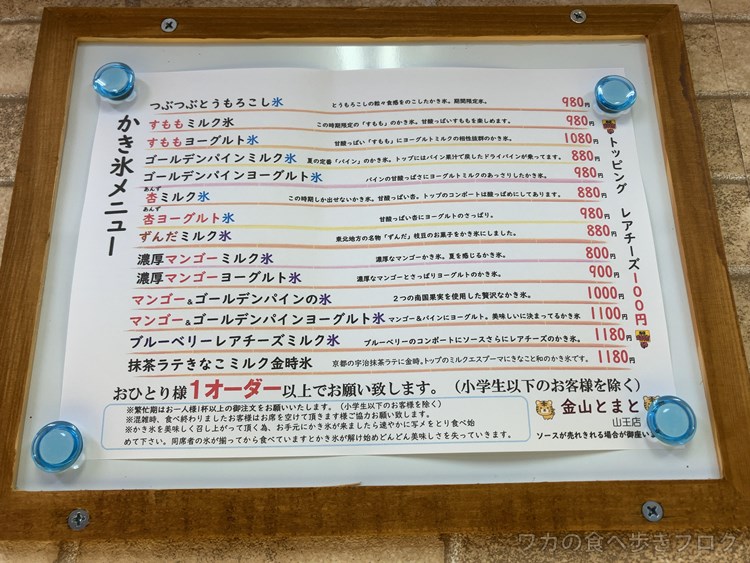 かき氷メニュー
つぶつぶとうもろこし氷 とうもろこしの粒々食感をのこしたかき氷。期間限定氷。 980円
すももミルク氷 この時期限定の「すもも」のかき氷。甘酸っぱいすももを楽しめます。 980円
すももヨーグルト氷 甘酸っぱい「すもも」にヨーグルトミルクの相性抜群のかき氷。 1080円
ゴールデンパインミルク氷 夏の定番「パイン」のかき氷。トップにはパイン果汁で戻したドライパインが乗ってます。 880円
ゴールデンパインヨーグルト氷 パインの甘酸っぱさにヨーグルトミルクのあっさりしたかき氷。 980円
あんず
杏ミルク氷 この時期しか出せないかき氷。甘酸っぱい杏。トップのコンポートは酸っぱめにしてあります。 880円
あんず
杏ヨーグルト氷 甘酸っぱい杏にヨーグルトのさっぱり。 980円
ずんだミルク氷 東北地方の名物「ずんだ」枝豆のお菓子をかき氷にしました。 880円
濃厚マンゴーミルク氷 濃厚なマンゴーかき氷。夏を感じるかき氷。 800円
濃厚マンゴーヨーグルト氷 濃厚なマンゴーとさっぱりヨーグルトのかき氷。 900円
マンゴー&ゴールデンパインの氷 2つの南国果実を使用した贅沢なかき氷。 1000円
マンゴー&ゴールデンパインヨーグルト氷 マンゴー&パインにヨーグルト。美味しいに決まってるかき氷 1100円
ブルーベリーレアチーズミルク氷 ブルーベリーのコンポートにソースさらにレアチーズのかき氷。 1180円
抹茶ラテきなこミルク金時氷 京都の宇治抹茶ラテに金時。トップのミルクエスプーマにきなこと和のかき氷です。 1180円
トッピング レアチーズ100円
おひとり様1オーダー以上でお願い致します。(小学生以下のお客様を除く)
※繁忙期はお一人様1杯以上の御注文をお願いいたします。(小学生以下のお客様を除く)
※混雑時、食べ終わりましたお客様はお席を空けて頂きます様ご協力お願い致します。
※かき氷を美味しく召し上がって頂く為、お手元にかき氷が来ましたら速やかに写メをとり食べ始
めて下さい。同席者の氷が揃ってから食べていますとかき氷が解け始めどんどん美味しさを失っていきます。
金山とまと
山王店
ソースが売れきれる場合が御座い
ワカの食べ歩きブログ